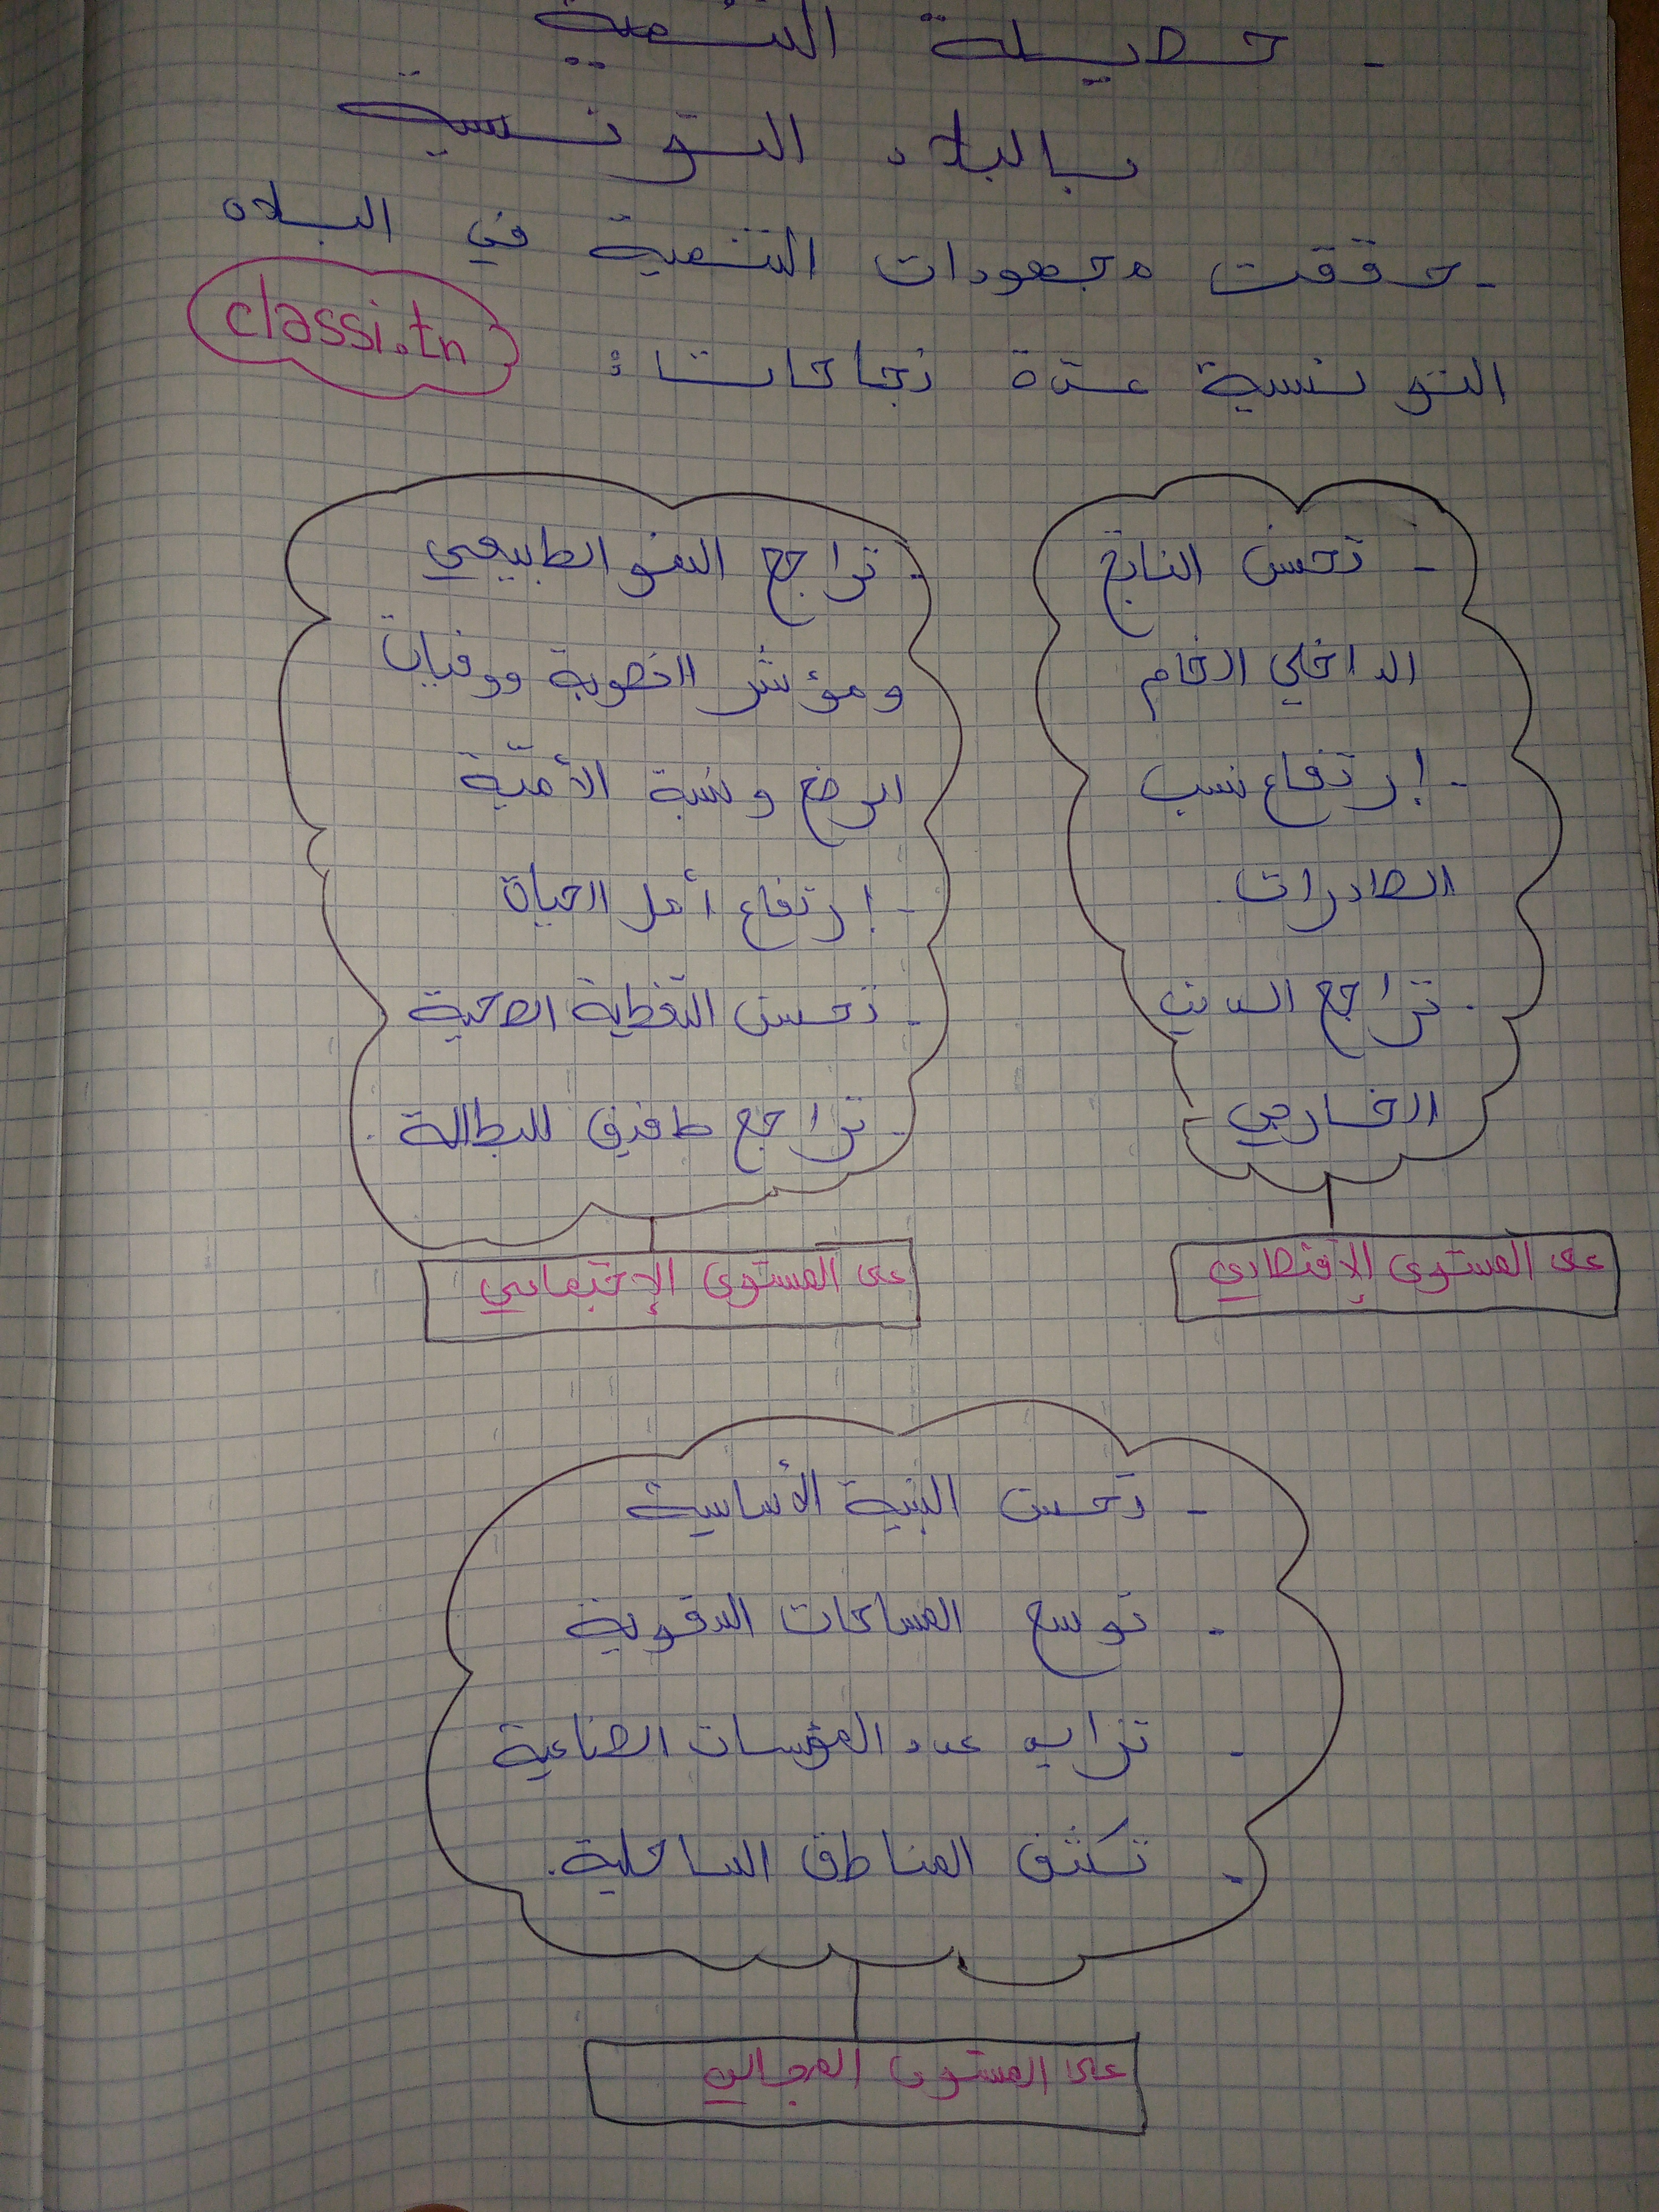 - حصيلة التنمية
بالبلاد التونسية
- حققت مجهودات التنمية في البلاد
التونسية عدة نجاحات:
classi.tn
- تحسن الناتج
الداخلي الخام
- إرتفاع نسب
الصادرات
- تراجع الدين
الخارجي
على المستوى الإقتصادي
- تراجع النمو الطبيعي
ومؤشر الخصوبة ووفيات
الرضع ونسبة الأميّة
- إرتفاع أمل الحياة
- تحسن التغطية الصحية
- تراجع طفيف للبطالة.
على المستوى الإجتماعي
- تحسن البنية الأساسية
- توسع المساحات السقوية
- تزايد عدد المؤسسات الصناعية
- تكثف المناطق الساحلية.
على المستوى المجالي